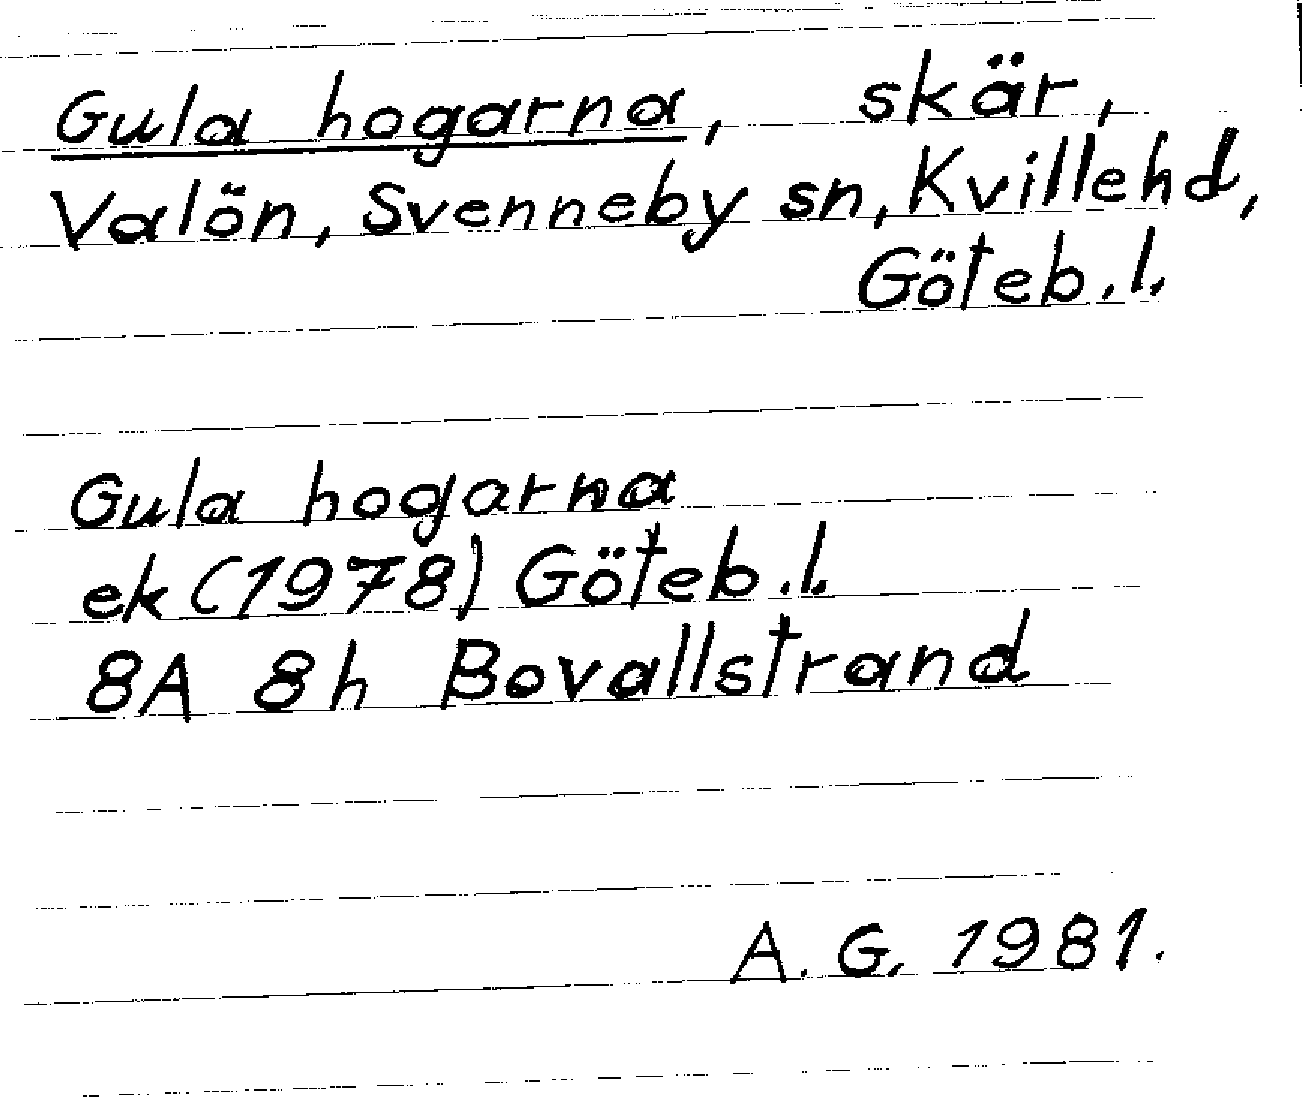 Gula hogarna, skär,
Valön, Svenneby sn, Kvillehd,
Göteb.l.
Gula hogarna
ek (1978) Göteb.l.
8A 8h Bovallstrand
A. G. 1981.